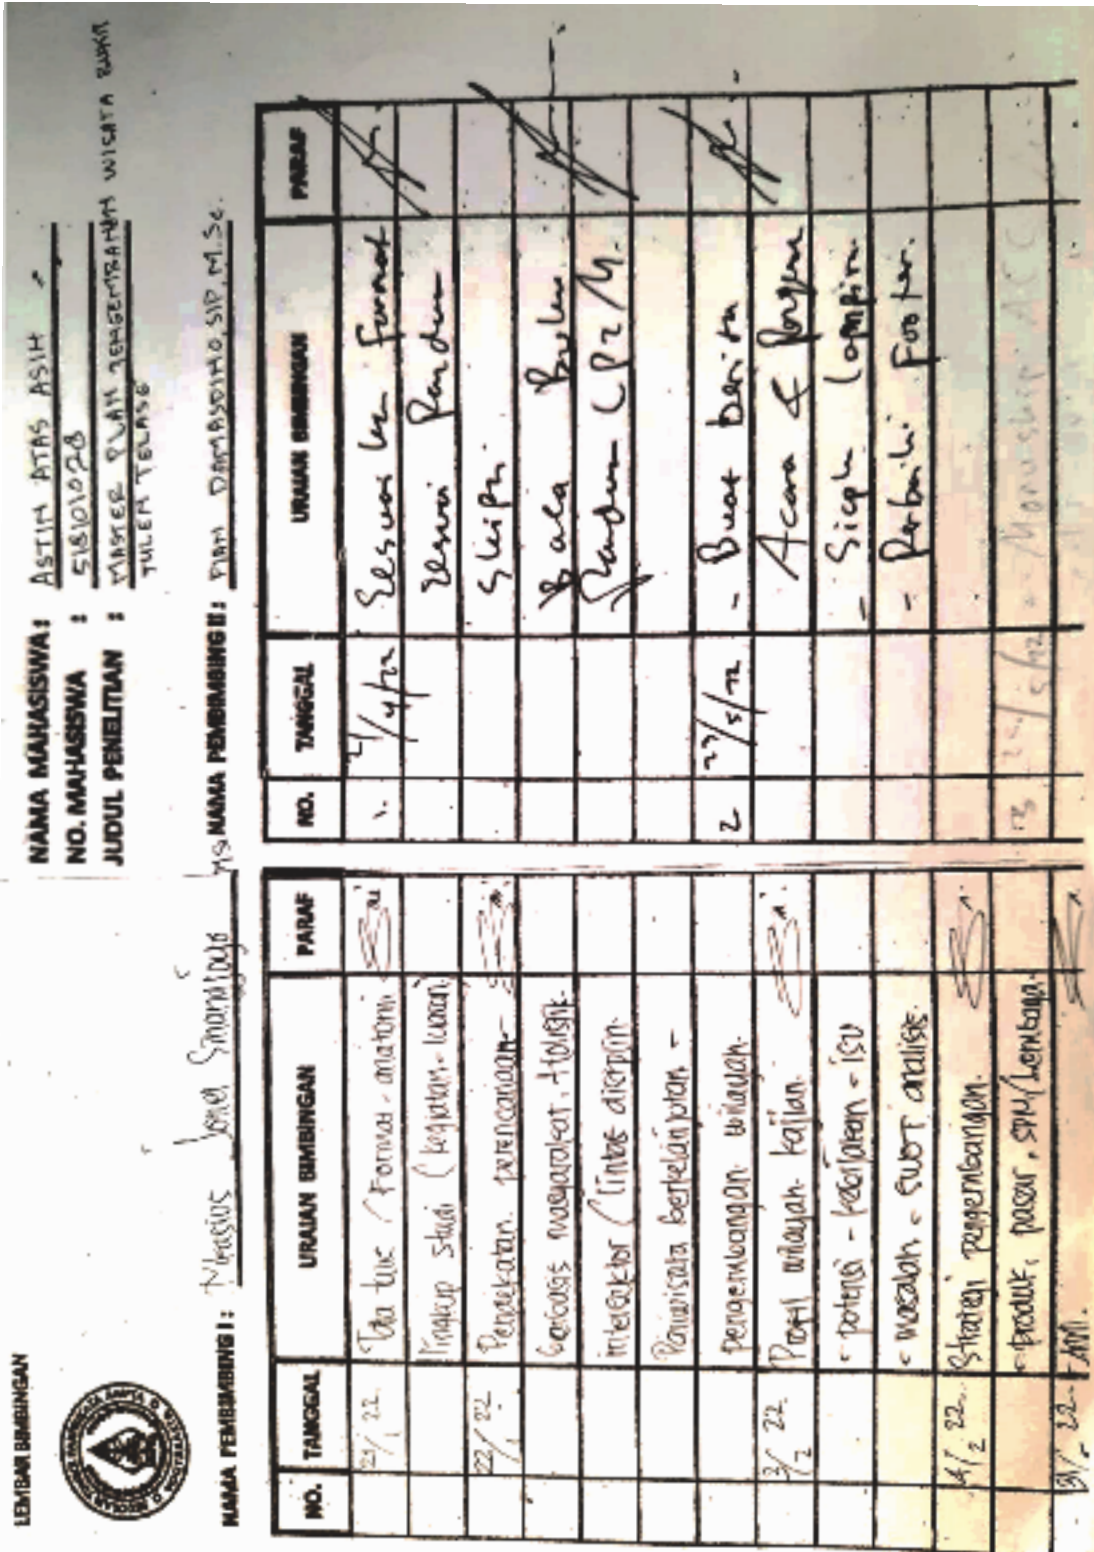 LEMBAR BIMBINGAN
NAMA MAHASISWA : ASTIN ATAS ASIH
NO. MAHASISWA : 518101028
JUDUL PENELITIAN : MASTER PLAN PENGEMBANGAN WISATA
TULEM TELAGE
NAMA PEMBIMBING I : Jonet
NAMA PEMBIMBING II : DAMASDINO, SIP, M.Sc.
NO. TANGGAL URAIAN BIMBINGAN PARAF
22 Tata tulis / Format - anatomi
lingkup studi ( kegiatan - luaran)
22/1 22 Pendekatan perencanaan -
berbasis masyarakat, holistik
intersektor / lintas disiplin
Pariwisata berkelanjutan -
pengembangan wilayah.
3/2 22 Profil wilayah kajian
- potensi - kebijakan - isu
- masalah - SWOT analisis.
14/2 22 Strategi pengembangan.
- produk, pasar, SDM/Lembaga
NO. TANGGAL URAIAN BIMBINGAN PARAF
1. 21/4/22 Sesuai kan Format
sesuai Panduan
Skripsi
Baca Buku
Panduan LP2M.
2 23/5/22 - Buat berita
Acara &
- Siapkan lampiran
- Perbaiki Footer.
3 /5/22 - Manuskrip ACC